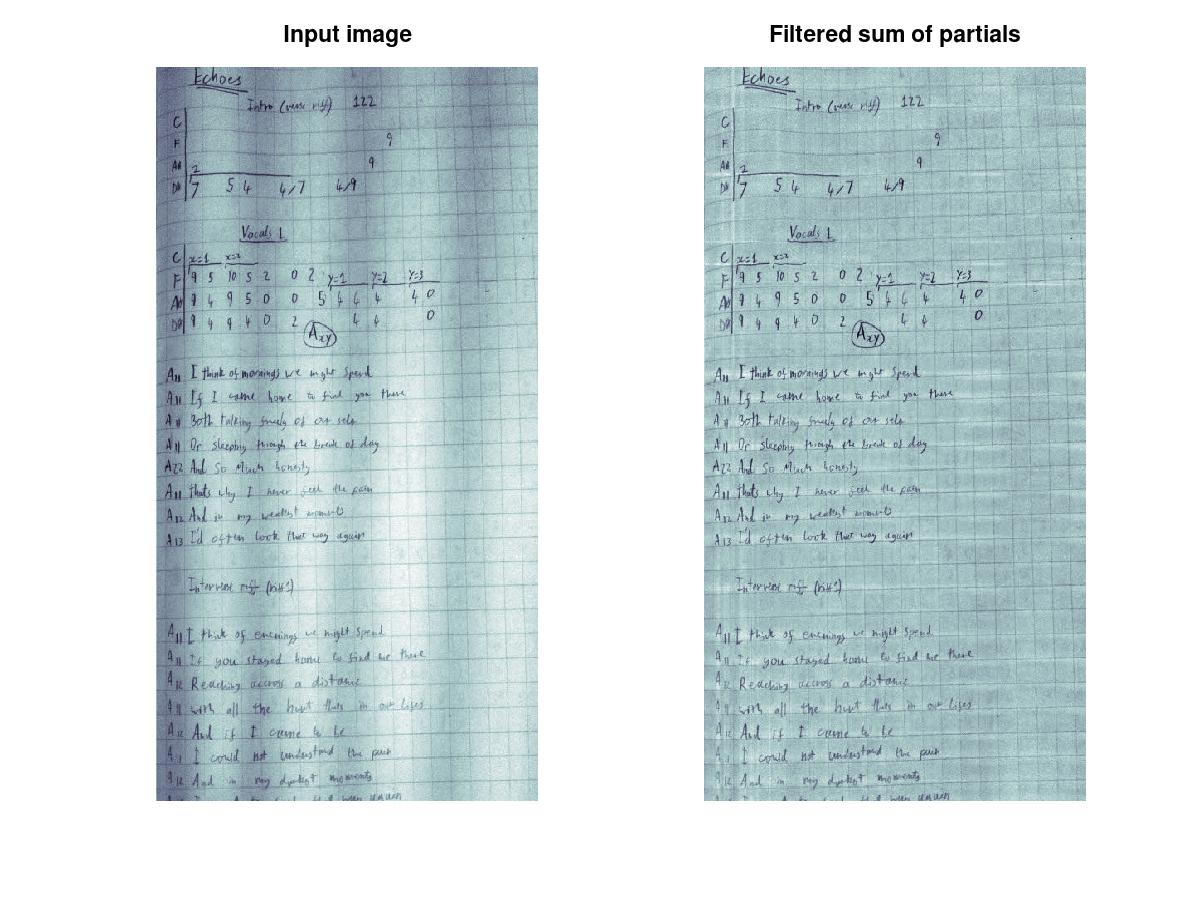 Input image
Echoes
Intro (verse riff) 122
C
F 9
A# 9
2
D# 7 5 4 4/7 4/9
Vocals 1
C x=1 x=2
F 9 5 10 5 2 0 2 y=1 y=2 y=3
A# 9 4 9 5 0 0 5 4 4 4 4 0
D# 9 4 9 4 0 2 4 4 0
Axy
A11 I think of mornings we might spend
A11 If I came home to find you there
A11 Both talking freely of our selfs
A11 Or sleeping through the break of day
A22 And so Much honesty
A11 thats why I never feel the pain
A12 And in my weakest moments
A13 I'd often look that way again
Interverse riff
A11 I think of evenings we might spend
A11 If you stayed home to find me there
A12 Reaching accross a distance
A11 with all the hurt thats in our lifes
A12 And if I came to be
A11 I could not understand the pain
A12 And in my darkest moments
Filtered sum of partials
Echoes
Intro (verse riff) 122
C
F 9
A# 9
2
D# 7 5 4 4/7 4/9
Vocals 1
C x=1 x=2
F 9 5 10 5 2 0 2 y=1 y=2 y=3
A# 9 4 9 5 0 0 5 4 4 4 4 0
D# 9 4 9 4 0 2 4 4 0
Axy
A11 I think of mornings we might spend
A11 If I came home to find you there
A11 Both talking freely of our selfs
A11 Or sleeping through the break of day
A22 And so Much honesty
A11 thats why I never feel the pain
A12 And in my weakest moments
A13 I'd often look that way again
Interverse riff
A11 I think of evenings we might spend
A11 If you stayed home to find me there
A12 Reaching accross a distance
A11 with all the hurt thats in our lifes
A12 And if I came to be
A11 I could not understand the pain
A12 And in my darkest moments